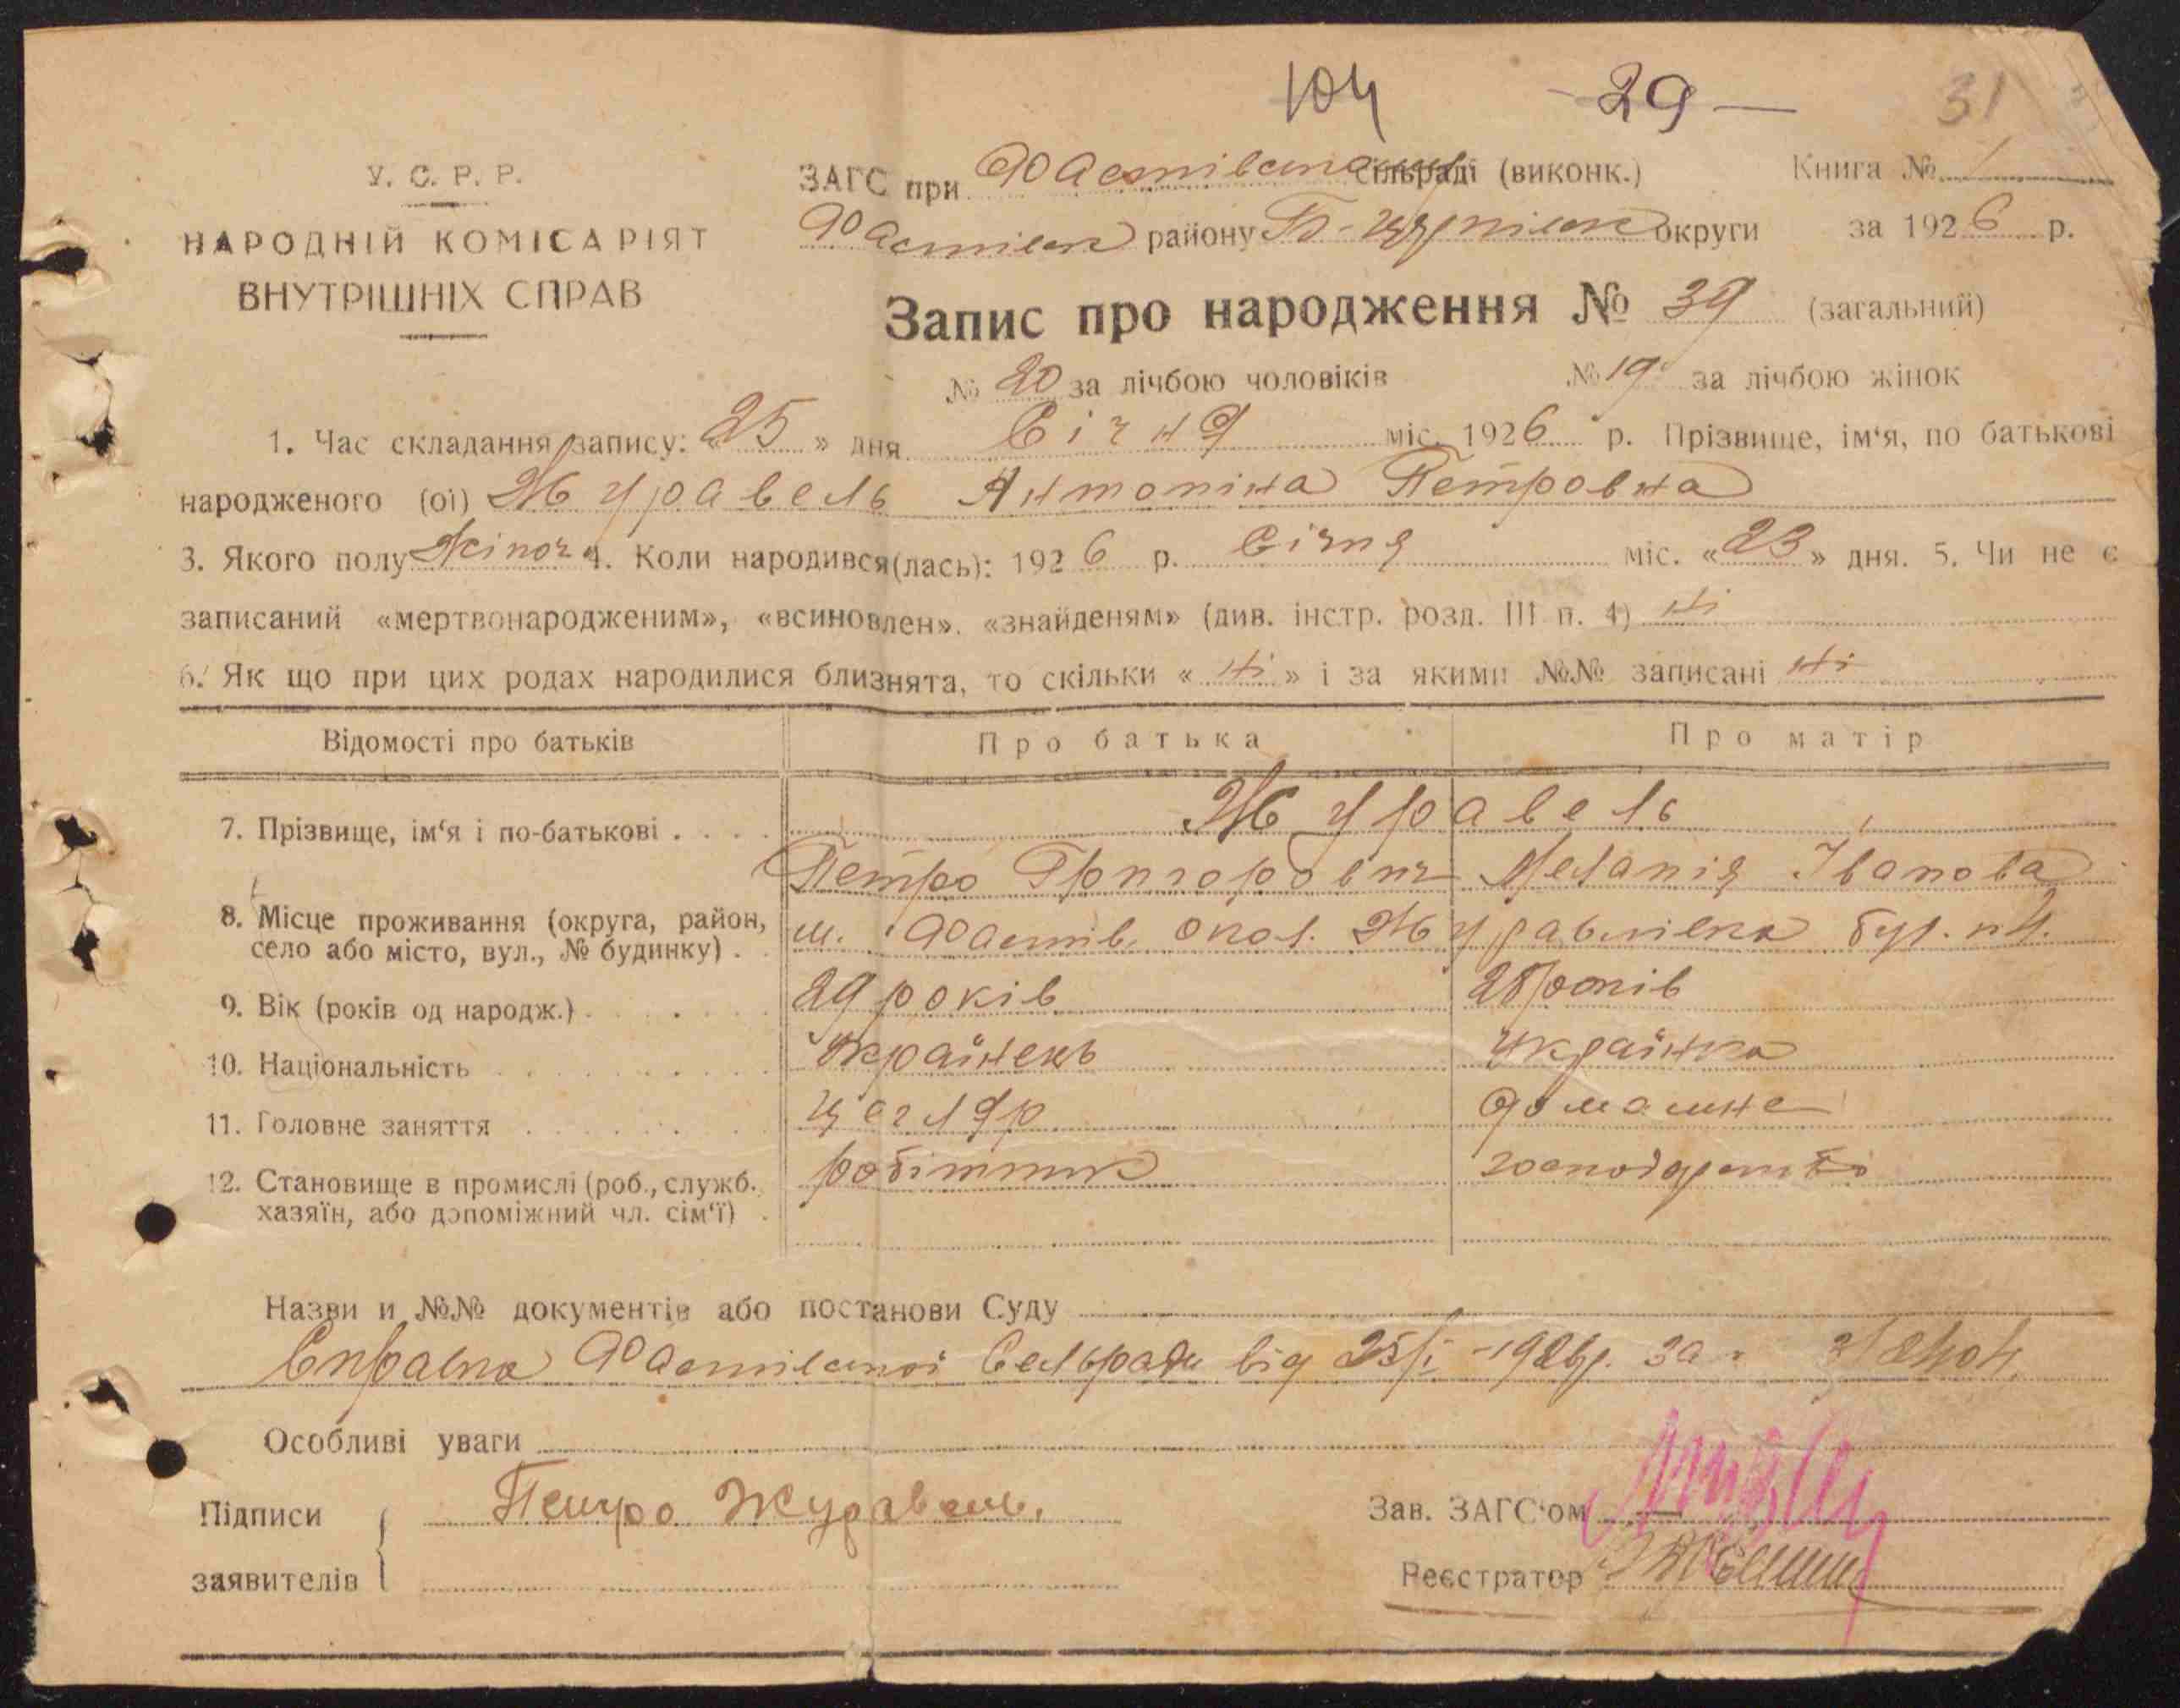 104 - 29 — 31
У. С. Р. Р.
НАРОДНІЙ КОМІСАРІЯТ
ВНУТРІШНІХ СПРАВ
ЗАГС при Фастівській сільраді (виконк.) Книга № 1
Фастівськ району Б-Церківськ округи за 1926 р.
Запис про народження № 39 (загальний)
№ 20 за лічбою чоловіків № 19 за лічбою жінок
1. Час складання запису: «25» дня Січня міс. 1926 р. Прізвище, ім‘я, по батькові
народженого (ої) Журавель Антоніна Петровна
3. Якого полу Жіноч 4. Коли народився(лась): 1926 р. Січня міс. «23» дня. 5. Чи не є
записаний «мертвонародженим», «всиновлен», «знайденям» (див. інстр. розд. III п. 4) Ні
6. Як що при цих родах народилися близнята, то скільки «Ні» і за якими №№ записані Ні
Відомості про батьків Про батька Про матір
7. Прізвище, ім‘я і по-батькові . . . . Журавель
Петро Григорович Меланія Іванова
8. Місце проживання (округа, район,
село або місто, вул., № будинку) . м. Фастів. окол. Журавлівка буд. №4.
9. Вік (років од народж.) . . . . . 29 років 28 років
10. Національність . . . . . . . . Українець Українка
11. Головне заняття . . . . . . . цегляр Домашнє
12. Становище в промислі (роб., служб.,
хазяїн, або допоміжний чл. сім‘ї) . робітник господарство
Назви и №№ документів або постанови Суду
Справка Фастівської Сельради від 25/I-1926р. за №
Особливі уваги
Підписи
заявителів
Петро Журавель.
Зав. ЗАГС‘ом
Реєстратор